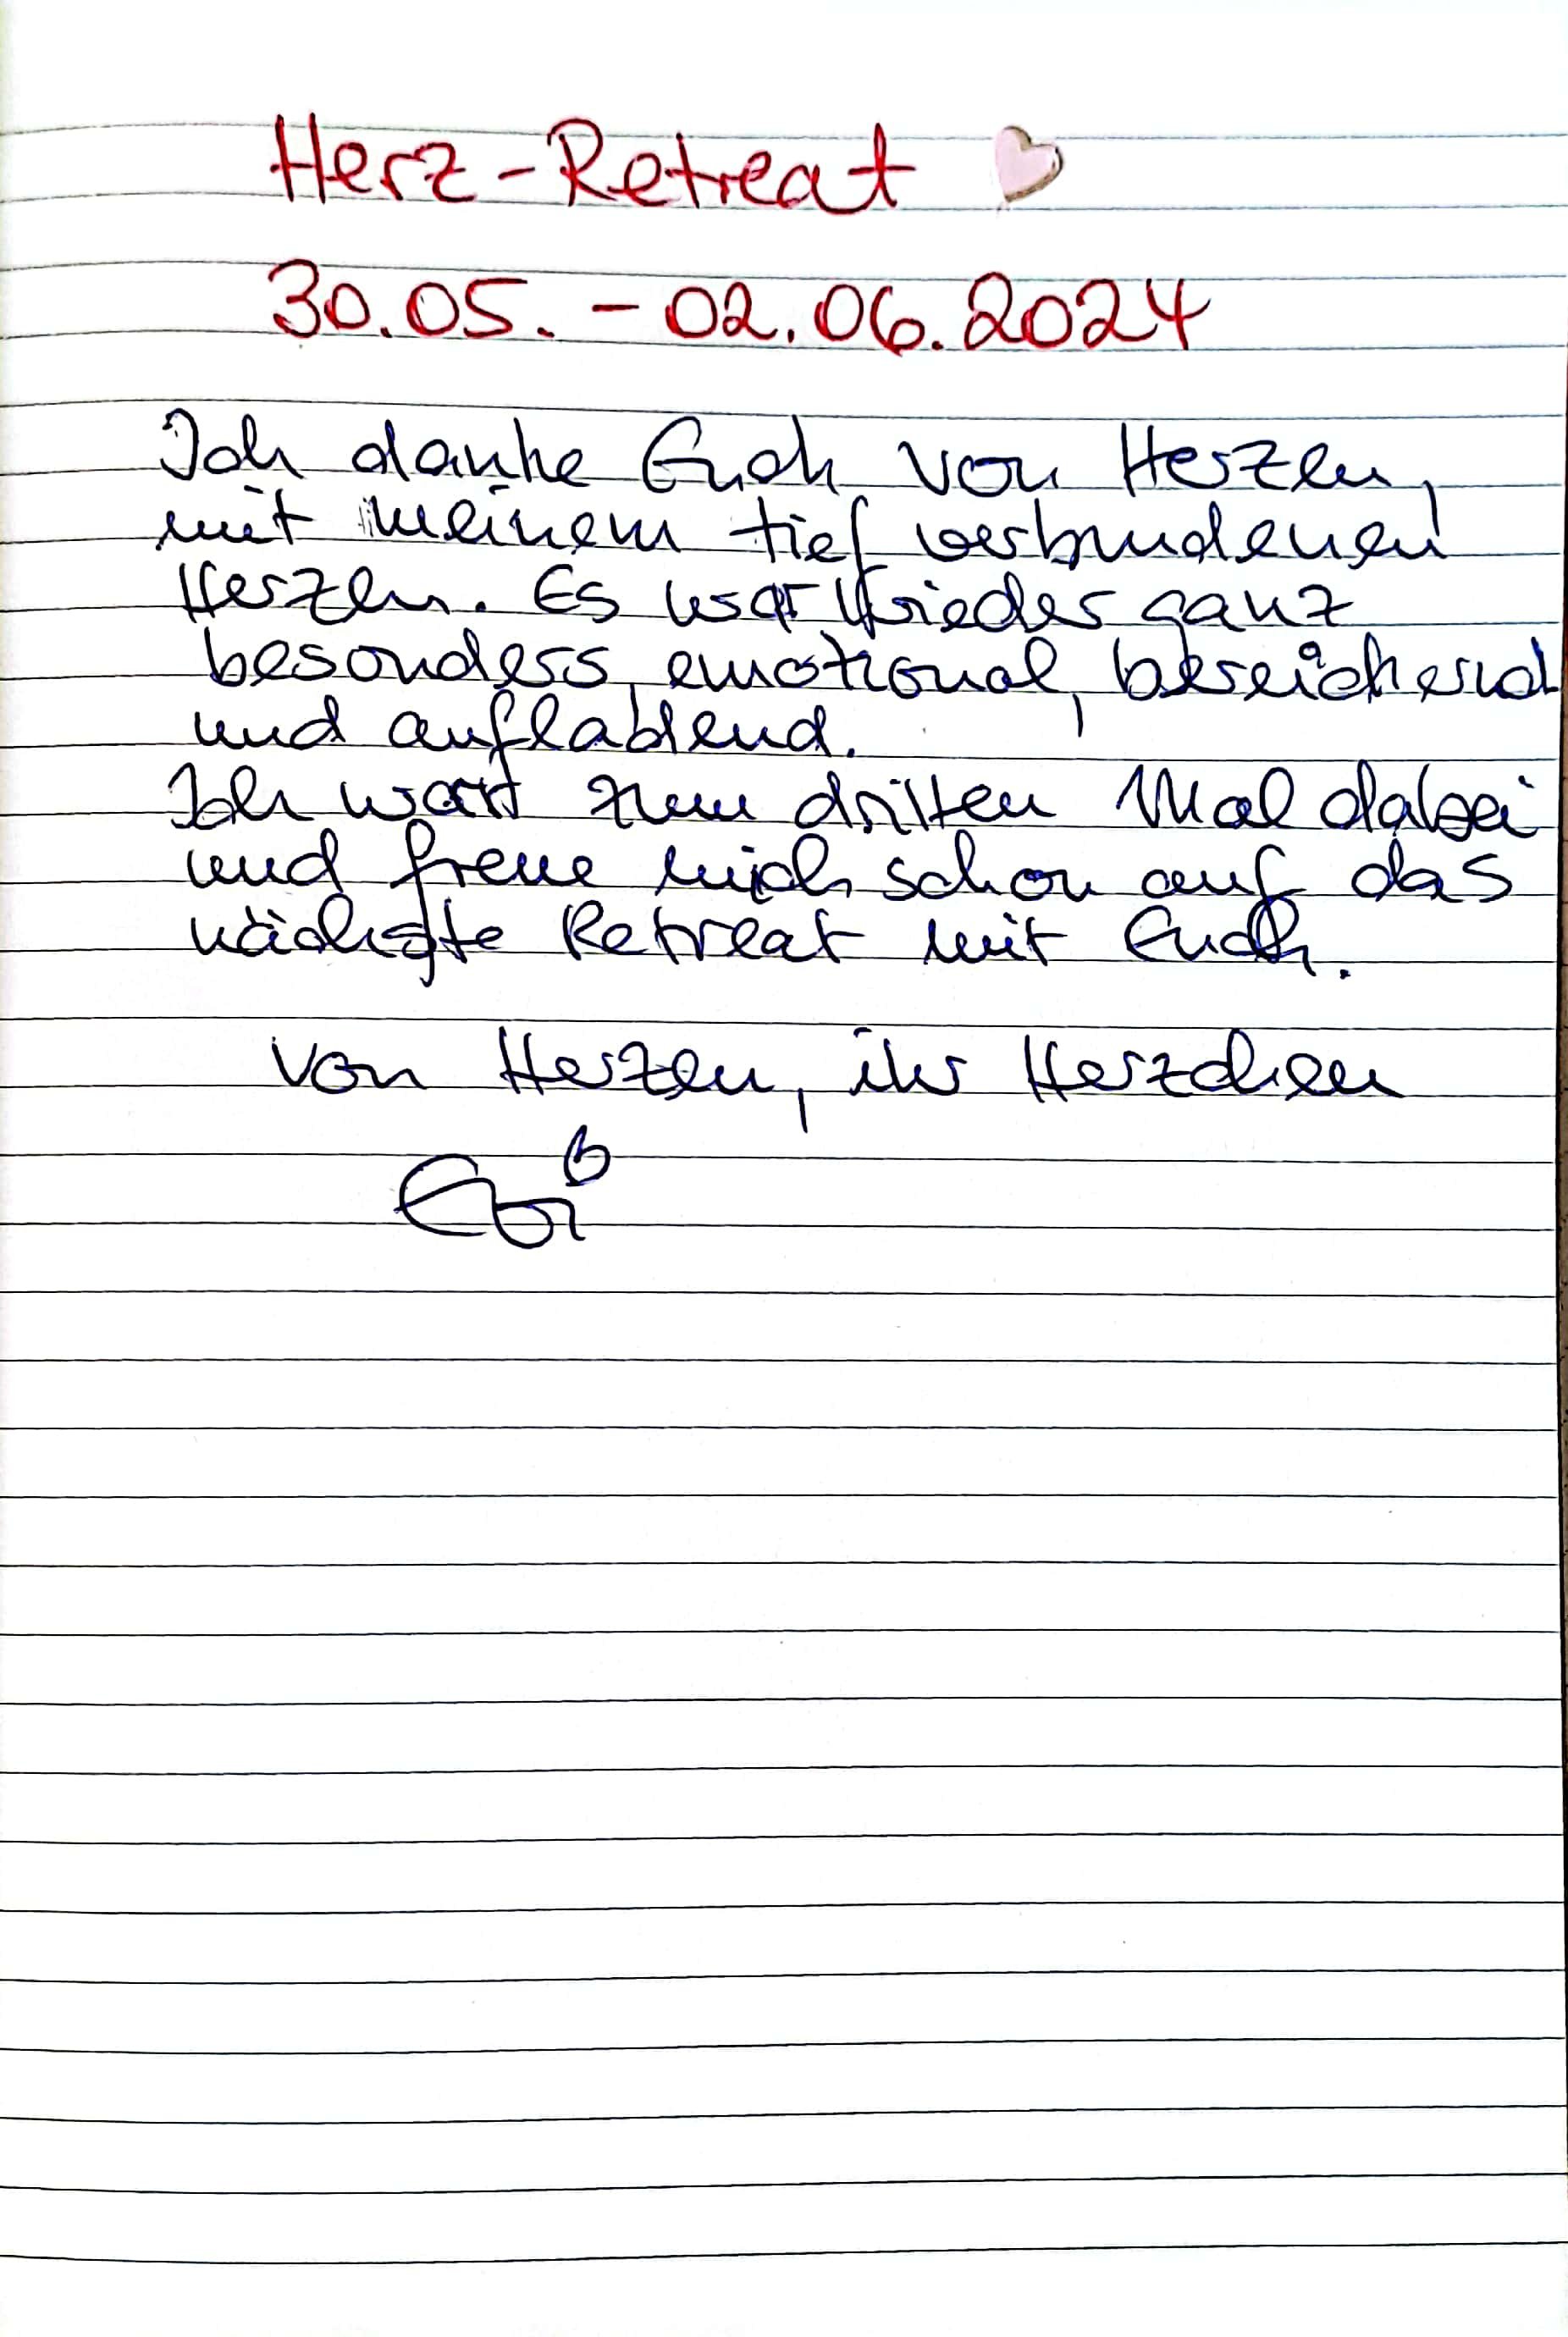 Herz-Retreat
30.05. - 02.06.2024
Ich danke Euch von Herzen,
mit meinem tief verbundenen
Herzen. Es war wieder ganz
besonders, emotional, bereichernd
und aufladend.
Ich war zum dritten Mal dabei
und freue mich schon auf das
nächste Retreat mit Euch.
Von Herzen, ihr Herzchen